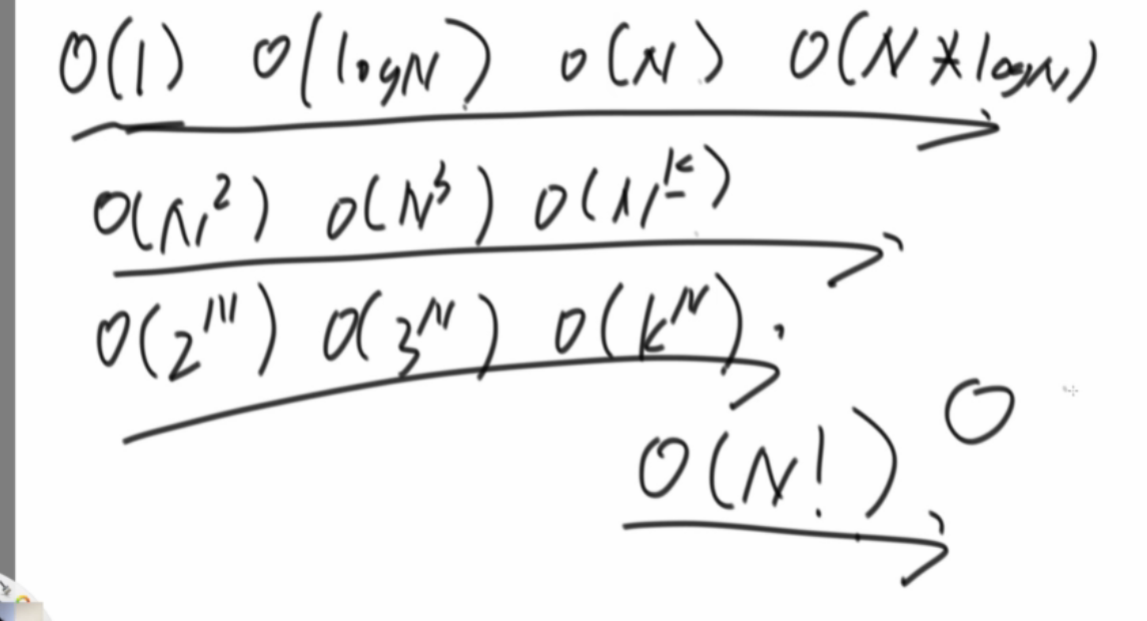 O(1) O(logN) O(N) O(N*logN)
O(N²) O(N³) O(Nᴷ)
O(2ᴺ) O(3ᴺ) O(kᴺ)
O(N!) O